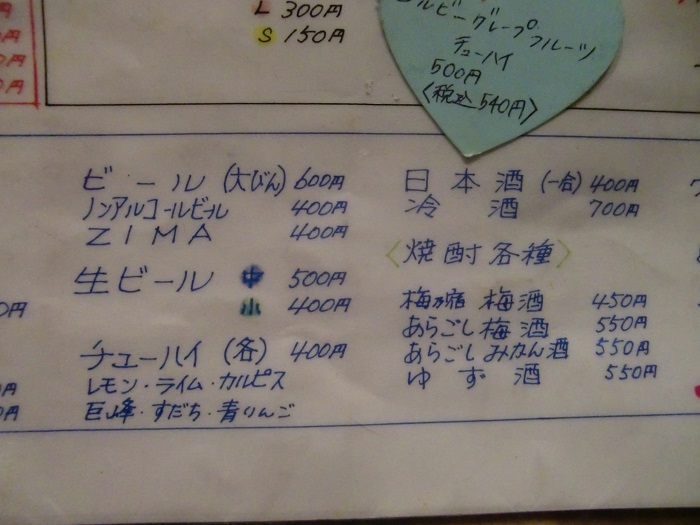 L 300円
S 150円
ルビーグレープ
フルーツ
チューハイ
500円
〈税込 540円〉
ビール (大びん) 600円
ノンアルコールビール 400円
ZIMA 400円
生ビール 中 500円
小 400円
チューハイ (各) 400円
レモン・ライム・カルピス
巨峰・すだち・青りんご
日本酒 (一合) 400円
冷酒 700円
〈焼酎各種〉
梅乃宿 梅酒 450円
あらごし梅酒 550円
あらごしみかん酒 550円
ゆず酒 550円